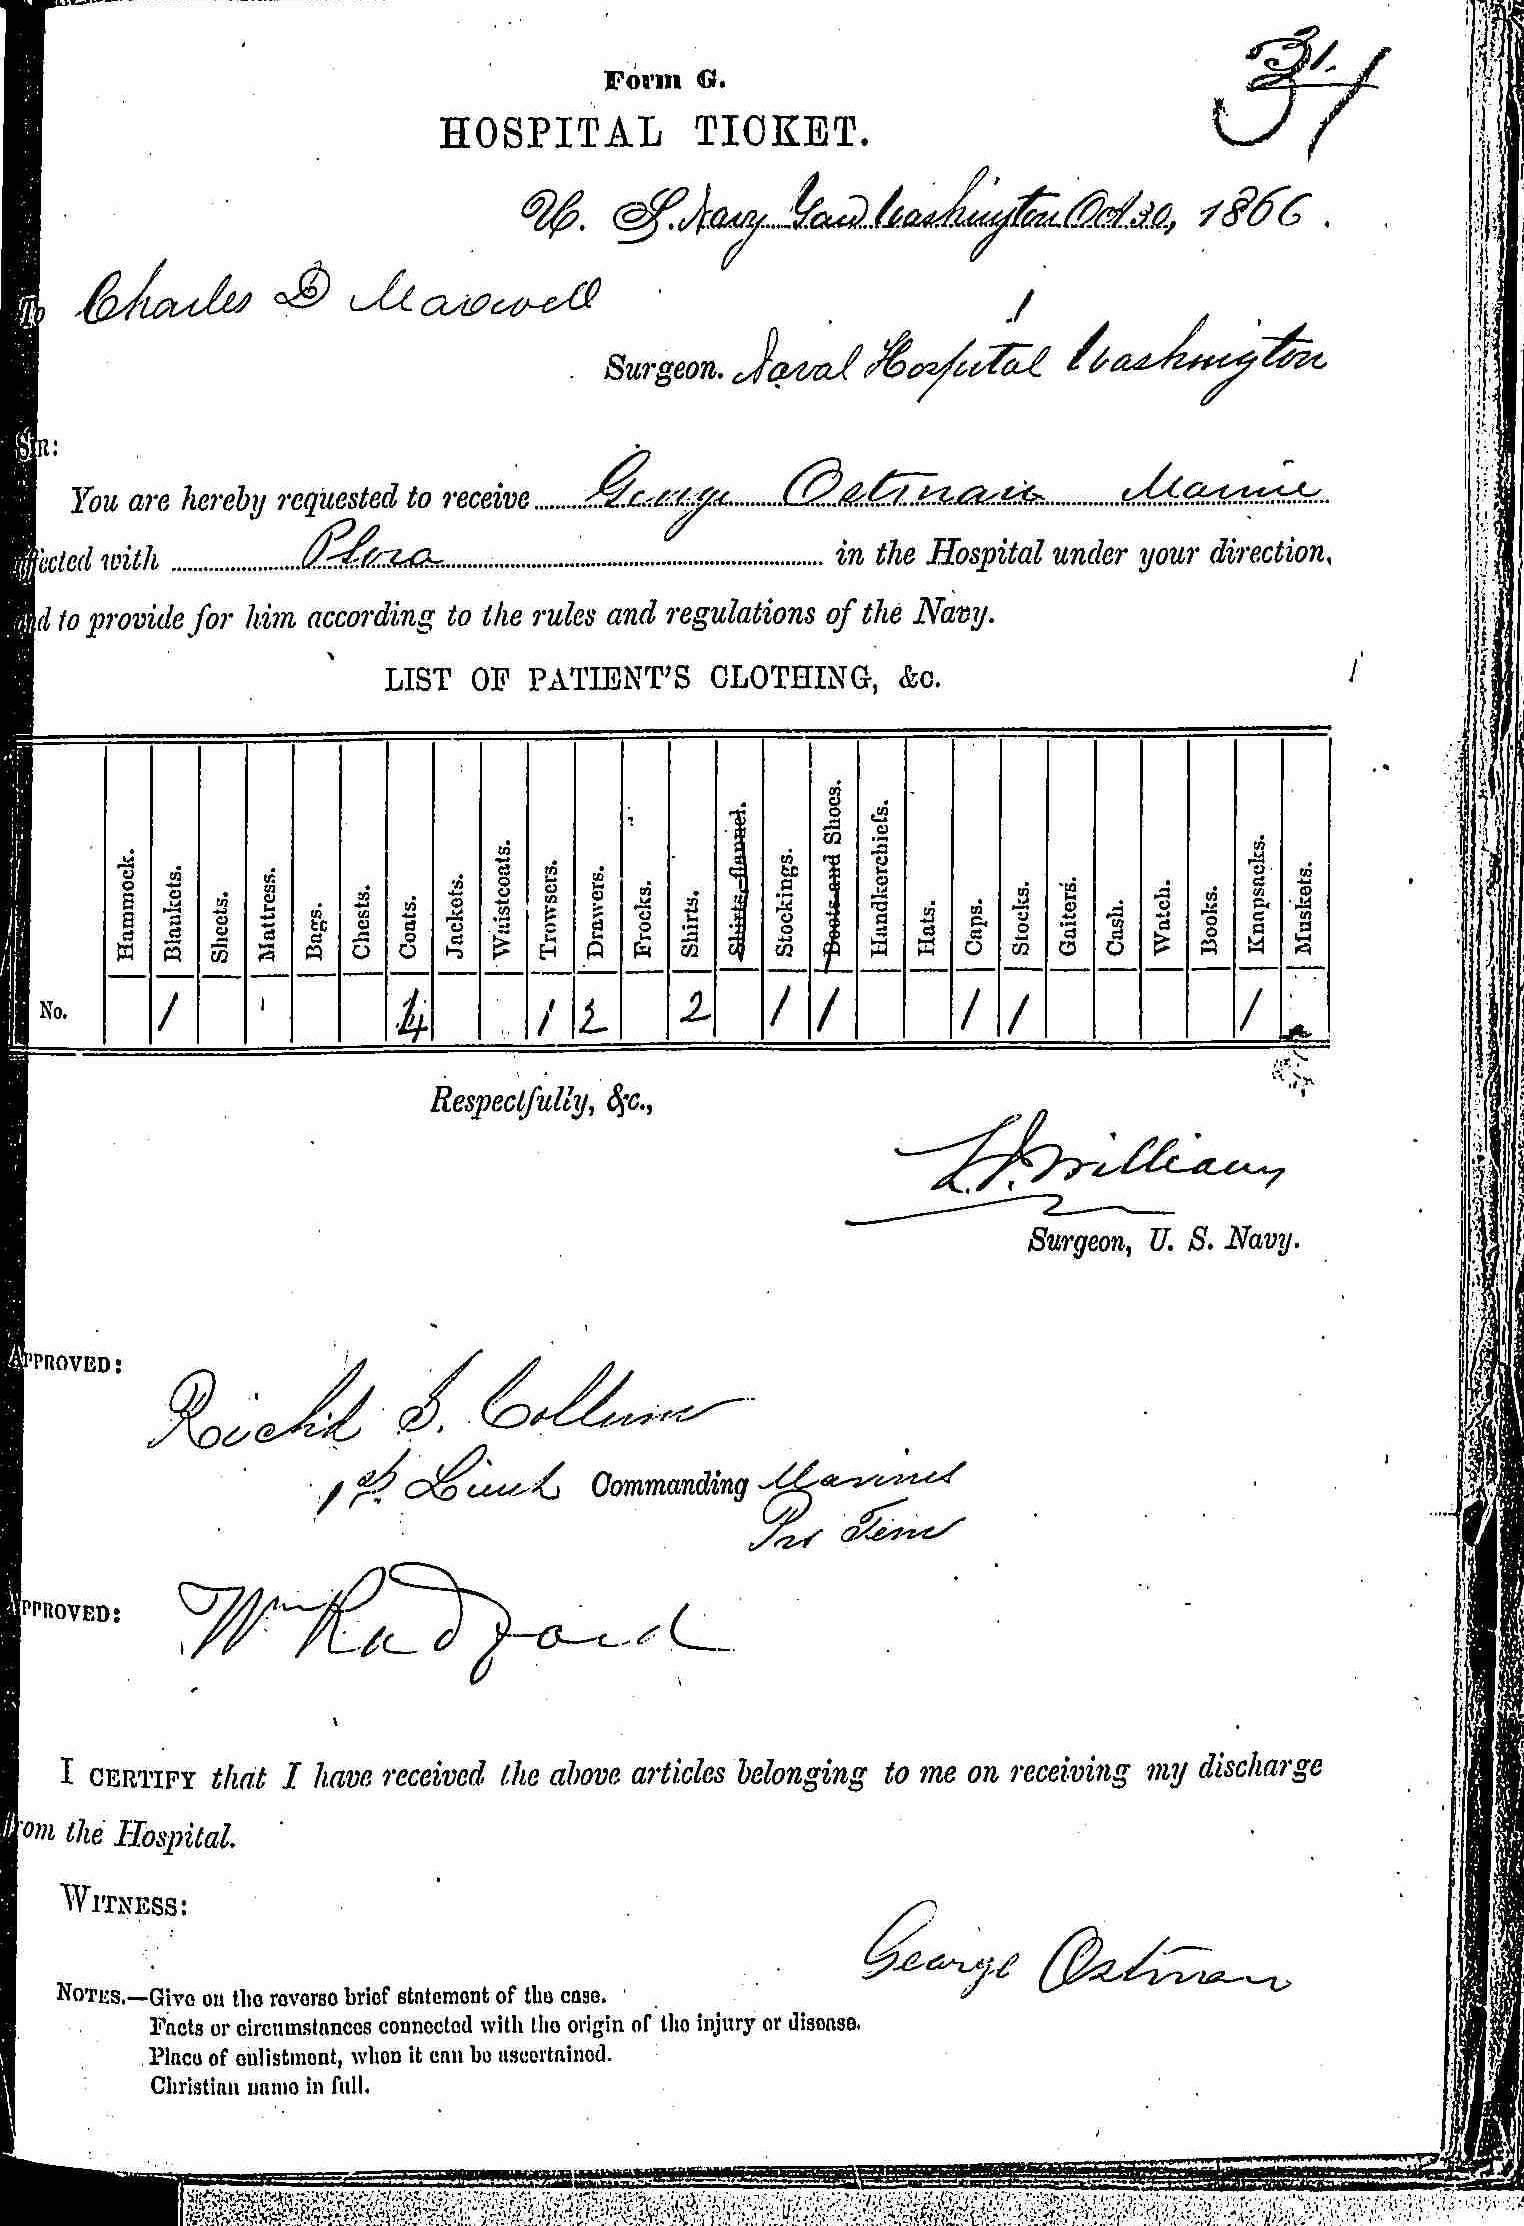 Form G.
31.
31
HOSPITAL TICKET.
U. S. Navy Yard Washington Oct 30, 1866.
To Charles D Maxwell
Surgeon. Naval Hospital Washington
SIR:
You are hereby requested to receive George Ostman Marine
affected with Psora in the Hospital under your direction,
and to provide for him according to the rules and regulations of the Navy.
LIST OF PATIENT'S CLOTHING, &c.
Hammock. Blankets. Sheets. Mattress. Bags. Chests. Coats. Jackets. Waistcoats. Trowsers. Drawers. Frocks. Shirts. Shirts, flannel. Stockings. Boots and Shoes. Handkerchiefs. Hats. Caps. Stocks. Gaiters. Cash. Watch. Books. Knapsacks. Muskets.
No. 1 1 2 2 1 1 1 1 1
Respectfully, &c.,
Williams
Surgeon, U. S. Navy.
APPROVED:
Rich'd S. Collum
1st Lieut Commanding Marines
Pro Tem
APPROVED: Wm Radford
I CERTIFY that I have received the above articles belonging to me on receiving my discharge
from the Hospital.
WITNESS:
George Ostman
NOTES.—Give on the reverse brief statement of the case.
Facts or circumstances connected with the origin of the injury or disease.
Place of enlistment, when it can be ascertained.
Christian name in full.